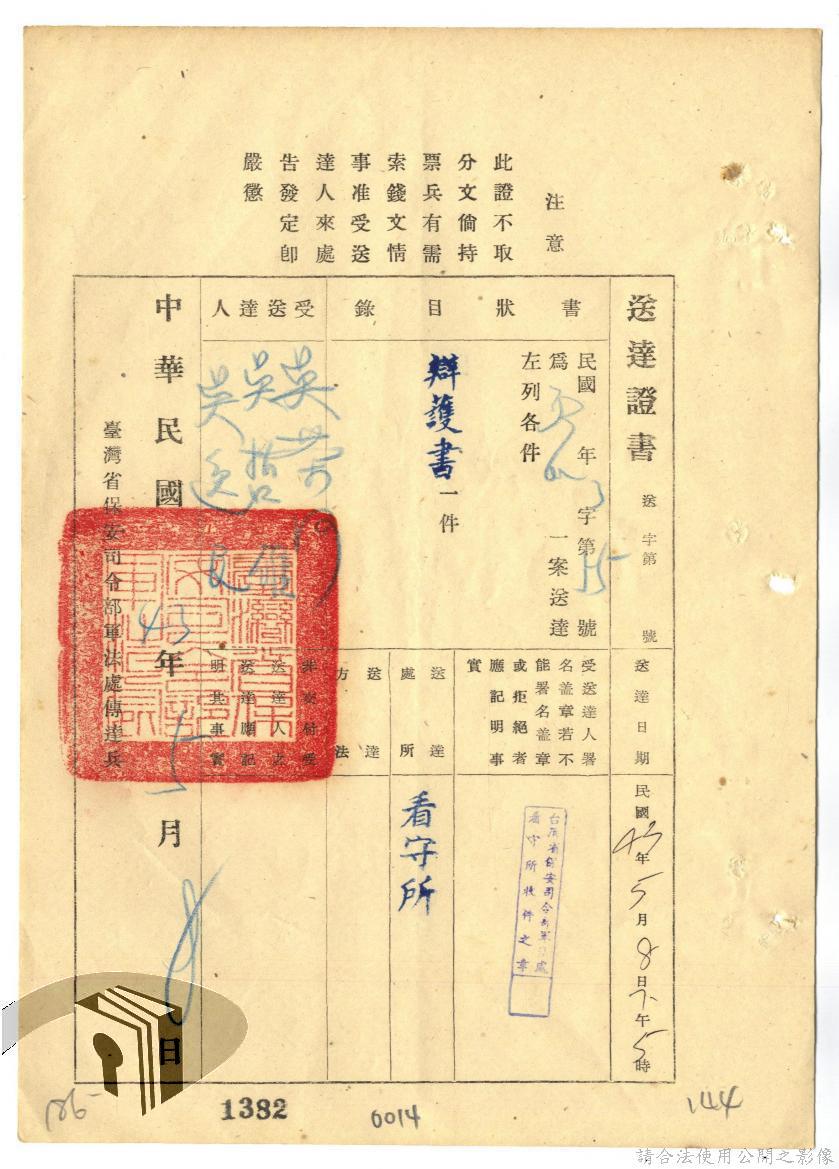 注意
此證不取
分文倘持
票兵有需
索錢文情
事准受送
達人來處
告發定卽
嚴懲
送達證書 送 字第 號
送達日期 民國43年5月8日下午5時
書狀目錄
民國 年 字第 號
爲 一案送達
左列各件
辯護書一件
受送達人署
名蓋章若不
能署名蓋章
或拒絕者
應記明事
實
台灣省保安司令部軍法處
看守所收件之章
送達處所
看守所
送達方法
受送達人
吳
吳哲雄
吳逸民
非交付受
送達人之
送達應記
明其事實
中華民國43年5月 日
臺灣省保安司令部軍法處傳達兵
186
1382
0014
144
請合法使用公開之影像